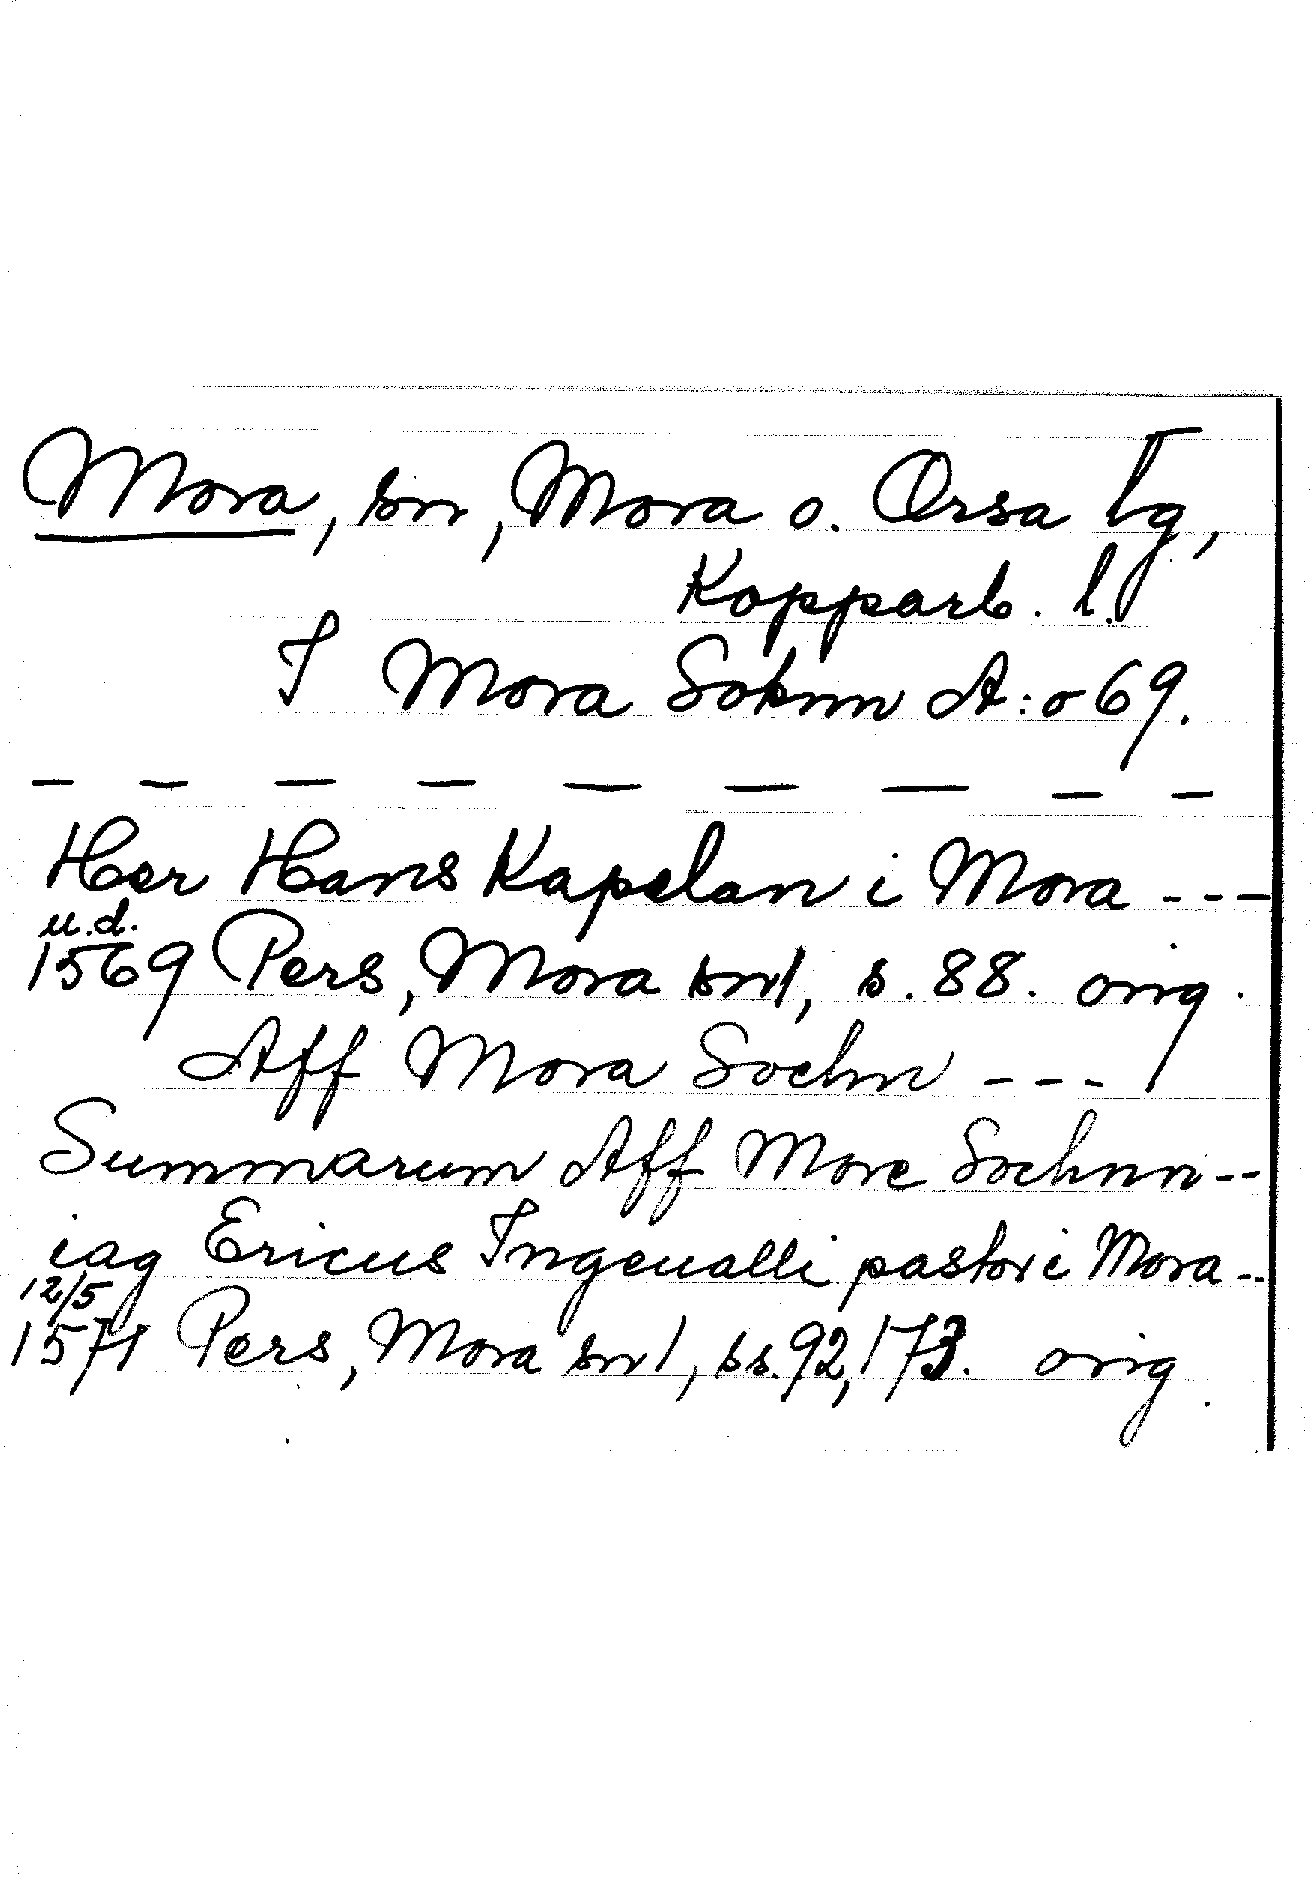 Mora, sn, Mora o. Orsa tg,
Kopparb. l.
I Mora Soknn A:o 69.
— — — — — — — — —
Her Hans Kapelan i Mora ---
u.d.
1569 Pers, Mora snl, s. 88. orig.
Aff Mora Sochn ---
Summarum Aff More Sochnn --
iag Ericus Ingeualli pastor i Mora --
12/5
1571 Pers, Mora snl, ss. 92, 173. orig.